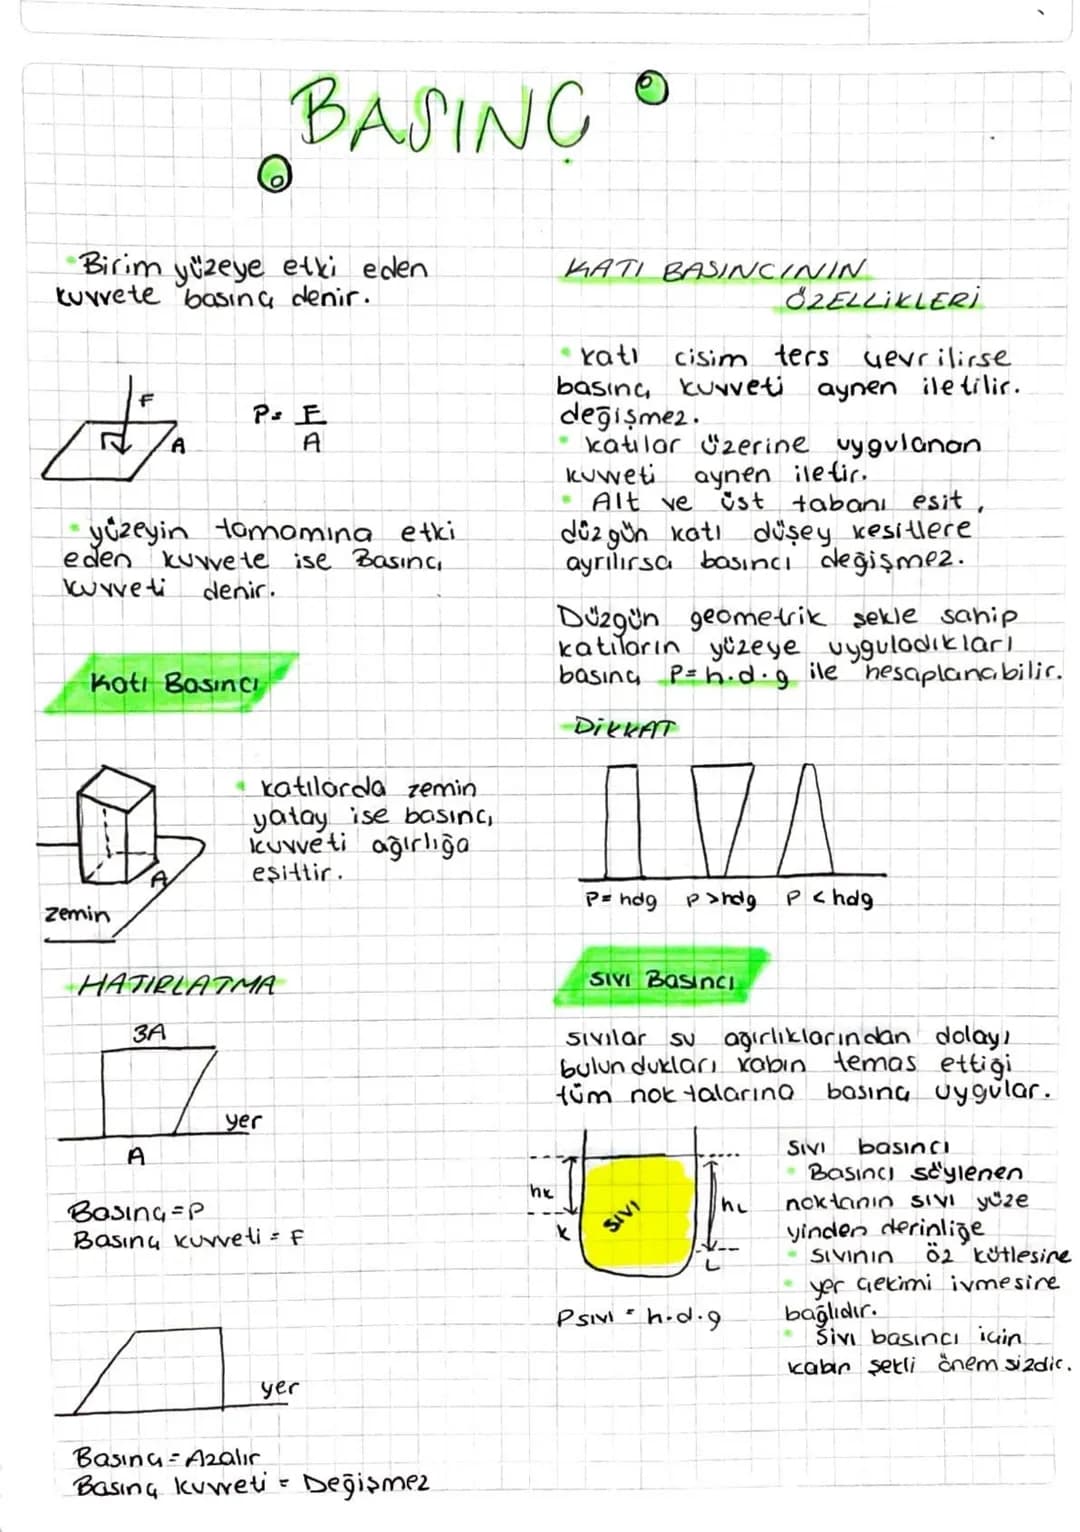 BASINÇ
• Birim yüzeye etki eden
kuvvete basınç denir.
F
A
P = F
A
• yüzeyin tamamına etki
eden kuvvete ise Basınç
kuvveti denir.
Katı Basıncı
• katılarda zemin
yatay ise basınç
kuvveti ağırlığa
eşittir.
A
zemin
HATIRLATMA
3A
yer
A
Basınç = P
Basınç kuvveti = F
yer
Basınç = Azalır
Basınç kuvveti = Değişmez
KATI BASINCININ
ÖZELLİKLERİ
• katı cisim ters çevrilirse
basınç kuvveti aynen iletilir.
değişmez.
• katılar üzerine uygulanan
kuvveti aynen iletir.
• Alt ve üst tabanı eşit,
düzgün katı düşey kesitlere
ayrılırsa basıncı değişmez.
Düzgün geometrik şekle sahip
katıların yüzeye uyguladıkları
basınç P = h.d.g ile hesaplanabilir.
DİKKAT
P = hdg P > hdg P < hdg
SIVI Basıncı
sıvılar su ağırlıklarından dolayı
bulundukları kabın temas ettiği
tüm noktalarına basınç uygular.
hK
K
SIVI
hL
L
Psıvı = h.d.g
Sıvı basıncı
• Basıncı söylenen
noktanın sıvı yüze
yinden derinliğe
• sıvının öz kütlesine
• yer çekimi ivmesine
bağlıdır.
• Sıvı basıncı için
kabın şekli önemsizdir.